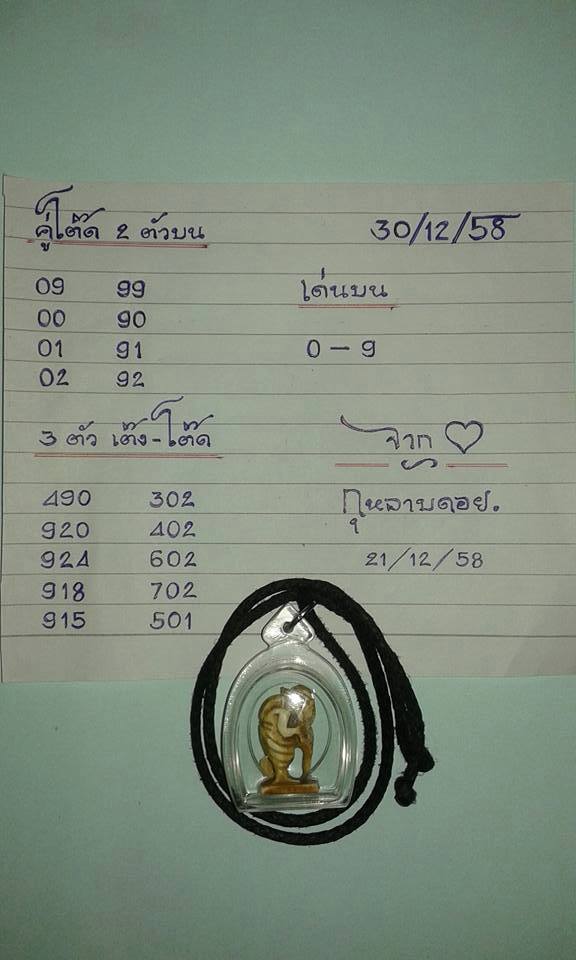 คู่โต๊ด 2 ตัวบน 30/12/58
09 99 เด่นบน
00 90
01 91 0 - 9
02 92
3 ตัว เต็ง-โต๊ด จาก ♡
490 302 กุหลาบดอย.
920 402
924 602 21/12/58
918 702
915 501